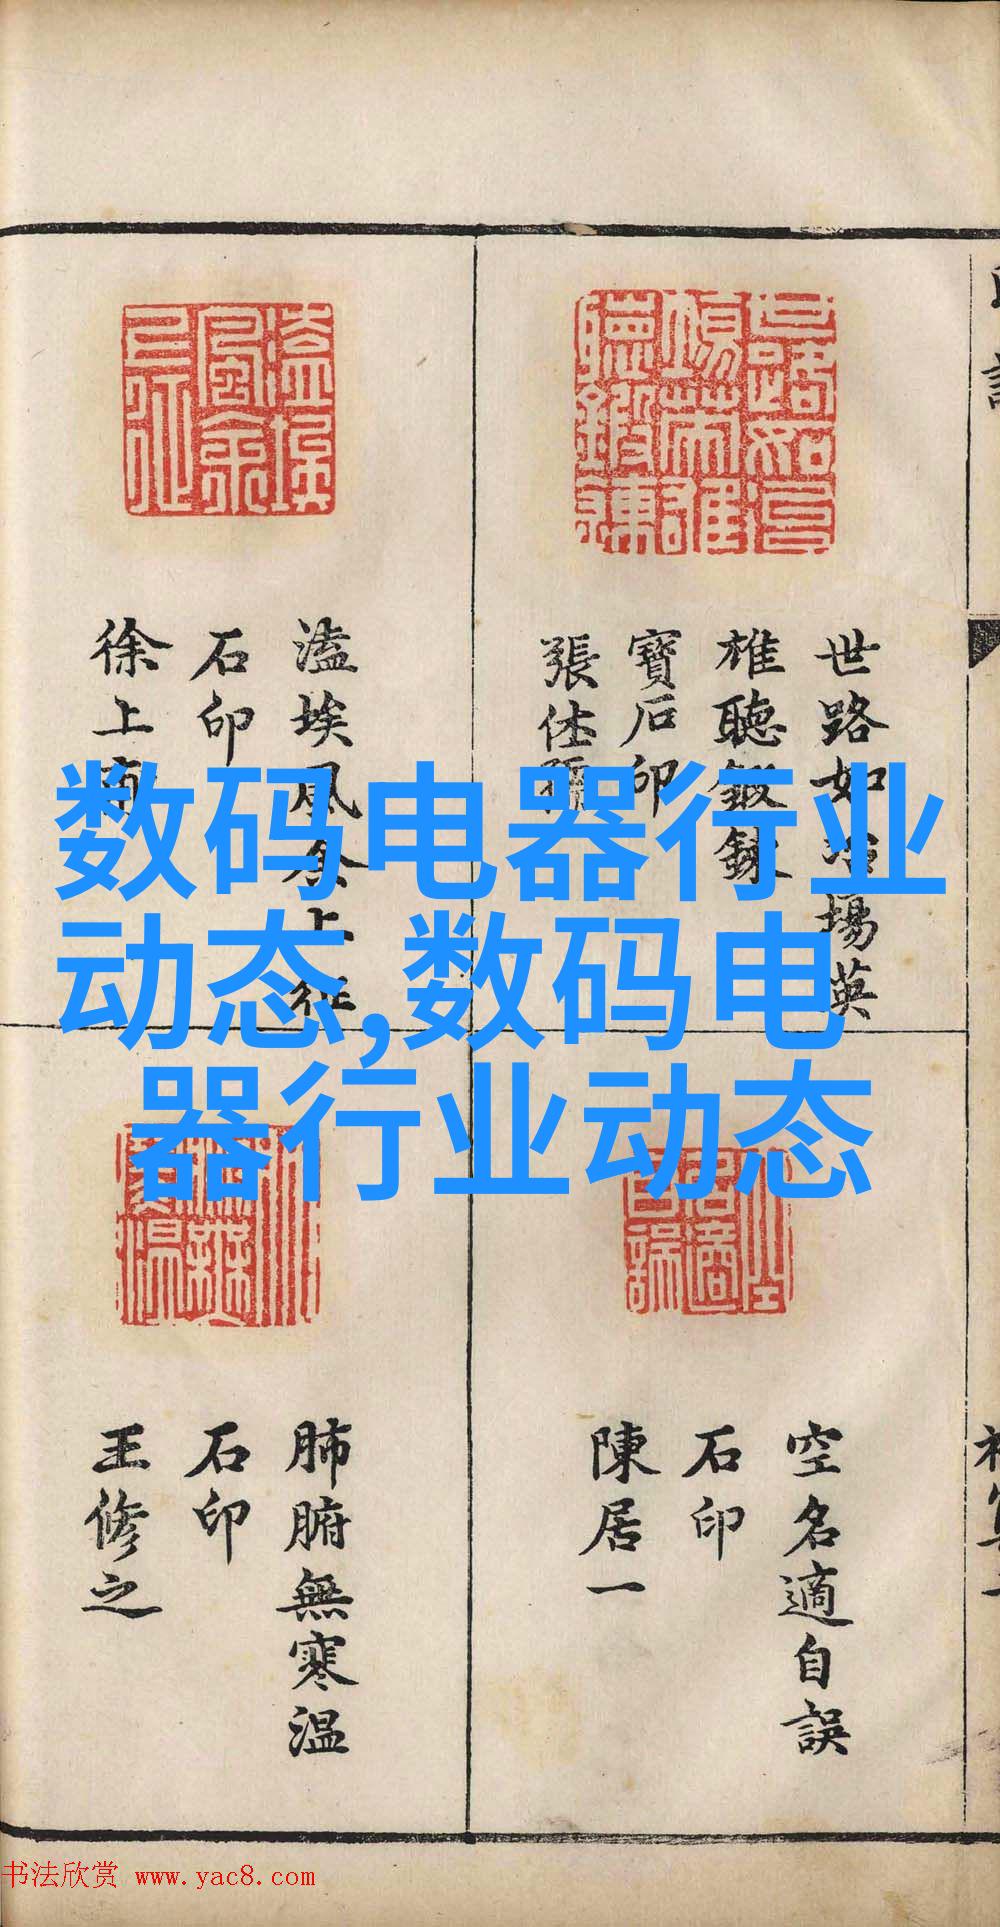 世路如冶場英
雄聽鍛鍊
寶石印
張仕
溘埃風余上征
石印
徐上南
空名適自誤
石印
陳居一
肺腑無寒温
石印
王修之
数码电器行业
动态,数码电
器行业动态
书法欣赏 www.yac8.com